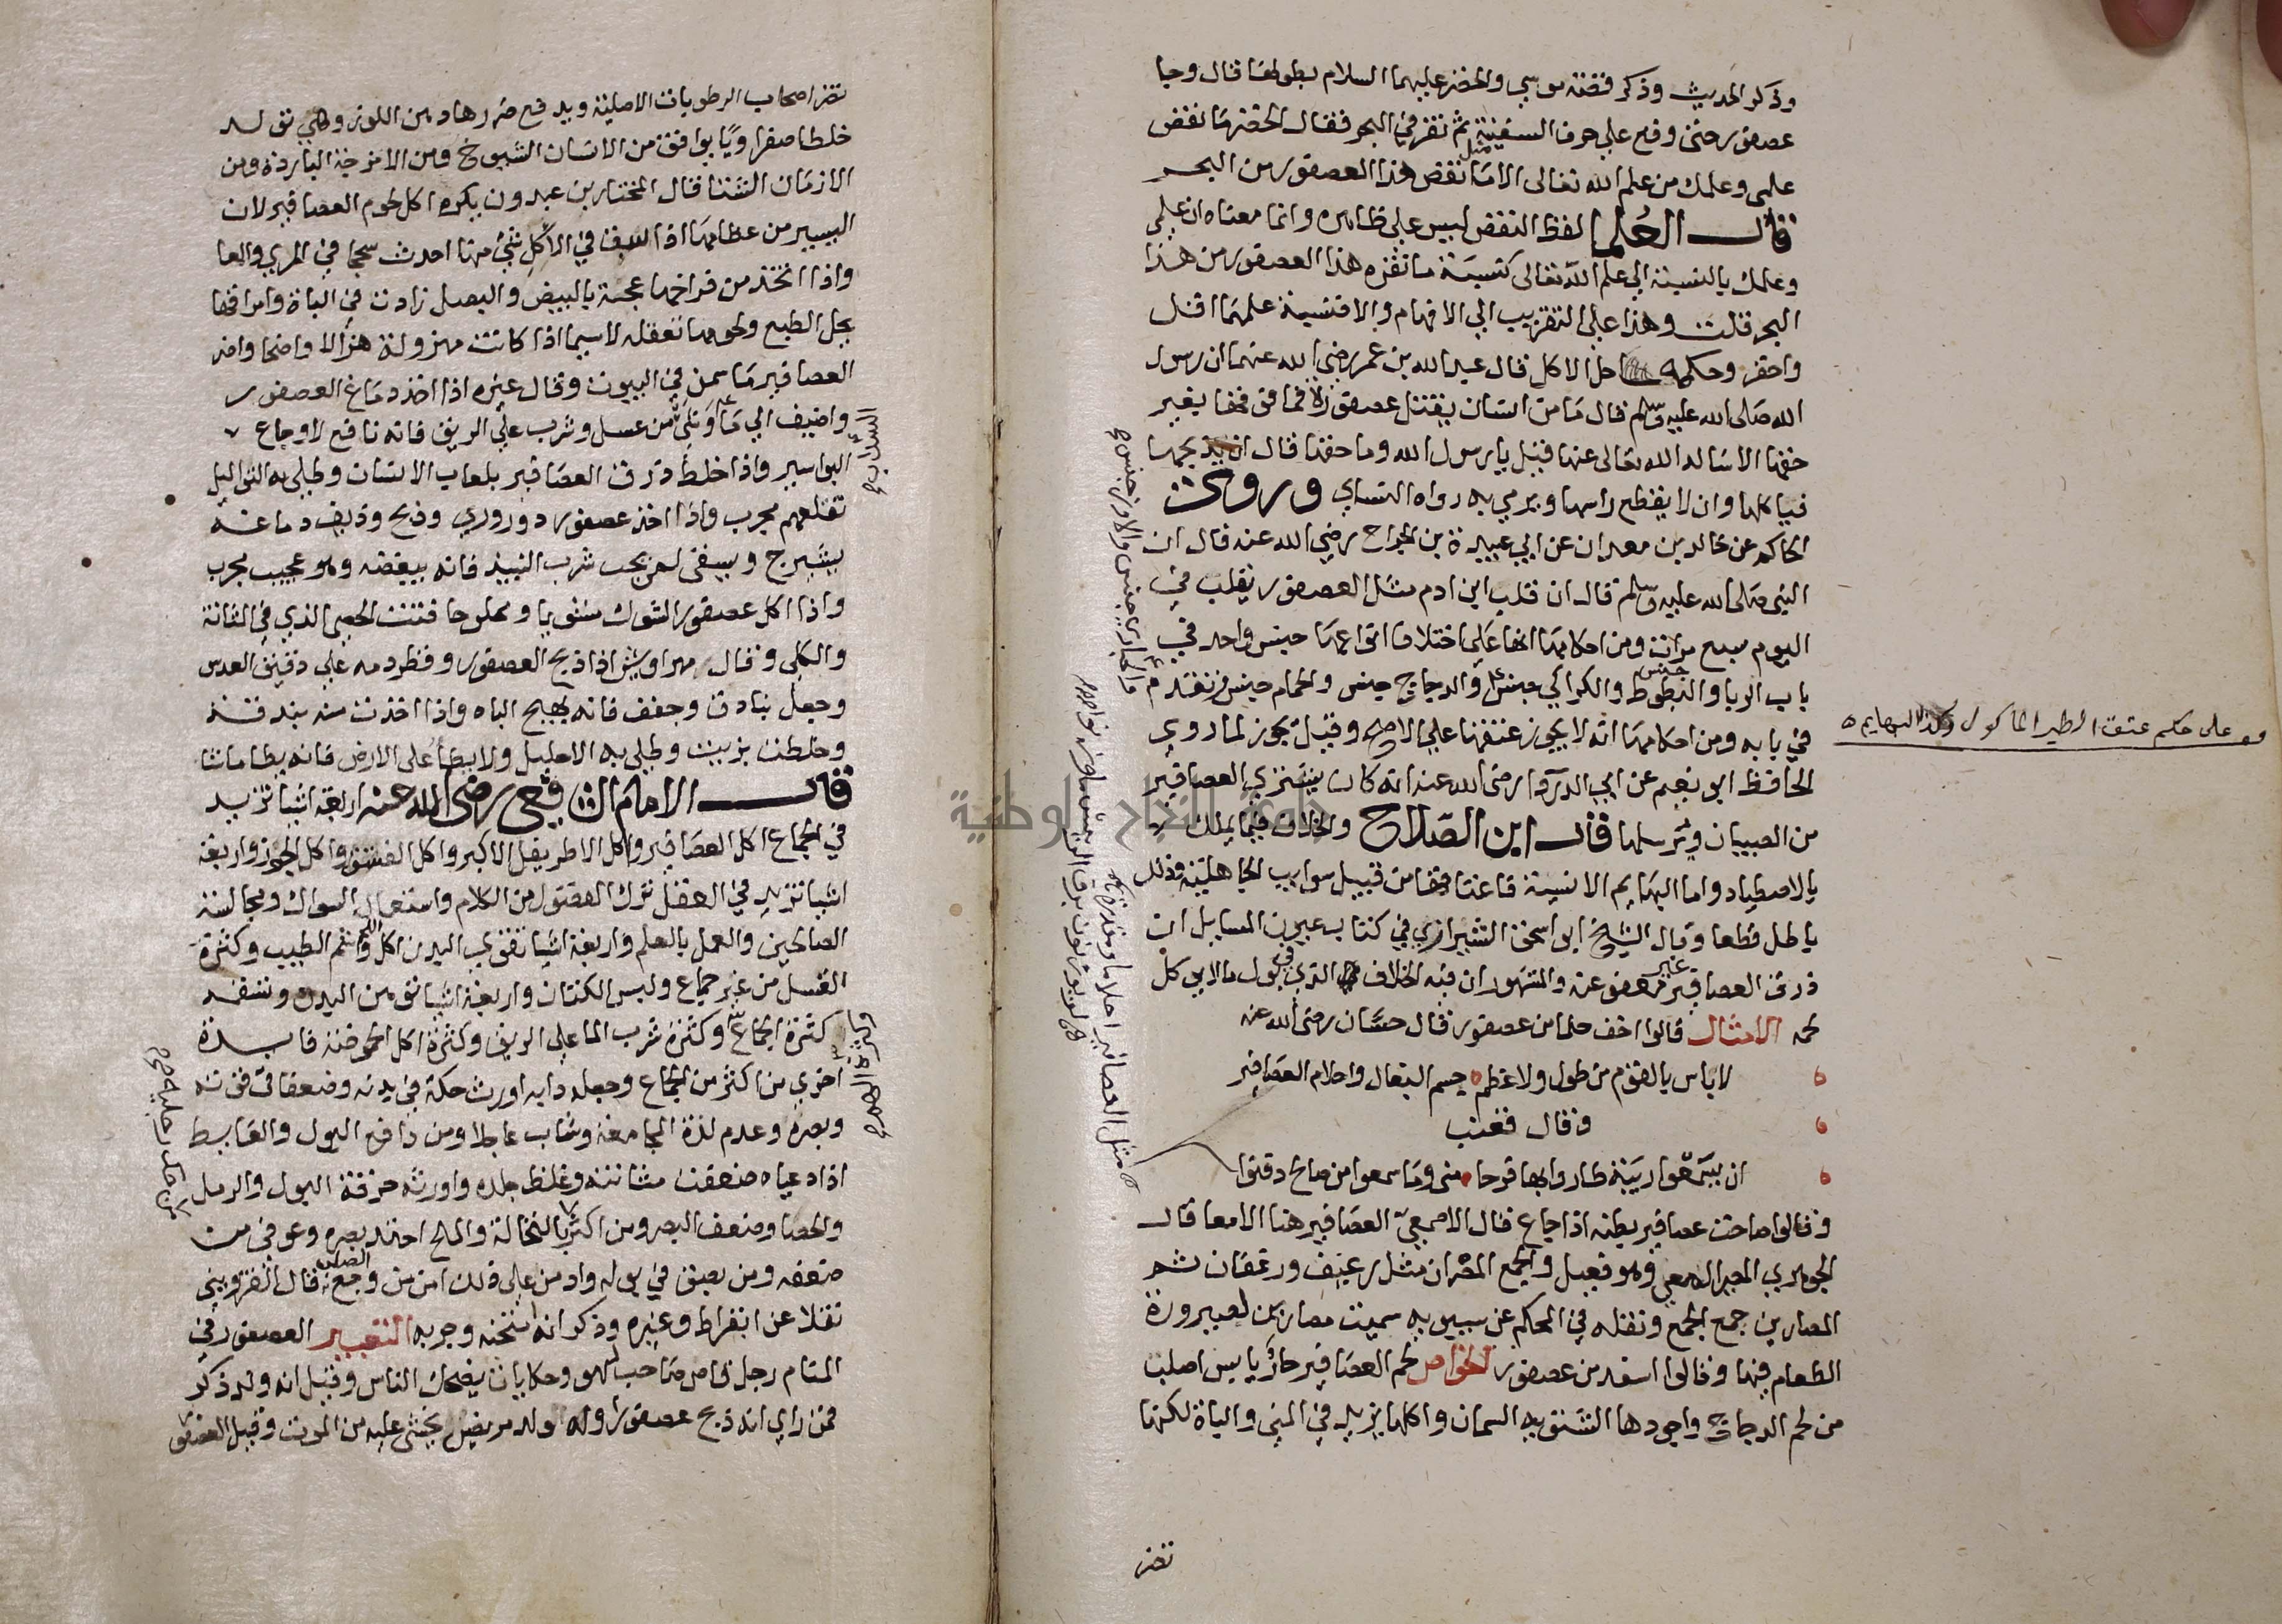 وذكر الحديث وذكر قصة موسي والخضر عليهما السلام بطولها قال وجا
عصفور حتى وقع علي حرف السفينة ثم نقر في البحر فقال الخضر ما نقص
علمى وعلمك من علم الله تعالى الا مثل ما نقص هذا العصفور من البحر
قال العلما لفظ النقص ليس على ظاهره وانما معناه ان علمي
وعلمك بالنسبة الي علم الله تعالى كنسبة ما نقره هذا العصفور من هذا
البحر قلت وهذا على التقريب الي الافهام والا فنسبة علمهما اقل
واحقر وحكمه حل الاكل قال عبد الله بن عمر رضي الله عنهما ان رسول
الله صلى الله عليه وسلم قال ما من انسان يقتل عصفورا فما فوقها بغير
حقها الا ساله الله تعالى عنها قيل يا رسول الله وما حقها قال ان يذبحها
فياكلها وان لا يقطع راسها ويرمي به رواه النساي وروى
الحاكم عن خالد بن معدان عن ابي عبيدة بن الجراح رضي الله عنه قال ان
النبى صلى الله عليه وسلم قال ان قلب ابن ادم مثل العصفور يتقلب في
اليوم سبع مرات ومن احكامها انها على اختلاف انواعها جنس واحد في
باب الربا والبطوط جنس والكراكي جنس والدجاج جنس والحمام جنس وتقدم
والحبارى جنس والاوز جنس
في بابه ومن احكامها انه لا يجوز عتقها علي الاصح وقيل يجوز لما روي
وو على حكم عتق الطير الماكول وكذا البهايم
الحافظ ابو نعيم عن ابي الدردا رضى الله عنه انه كان يشتري العصافير
من الصبيان ويرسلها قال ابن الصلاح والخلاف فيما يملك
بالاصطياد واما البهايم الانسية فاعتاقها من قبيل سوايب الجاهلية وذلك
باطل قطعا وقال الشيخ ابو اسحق الشيرازي في كتاب عيون المسايل ان
ذرق العصافير غير معفو عنه والمشهور ان فيه الخلاف الذي في بول ما لا يوكل
لحمه الامثال قالوا اخف حلما من عصفور قال حسان رضى الله عنه
لا باس بالقوم من طول ولا عظم جسم البغال واحلام العصافير
وقال قعنب
ان يسمعوا ريبة طاروا بها فرحا منى وما سمعوا من صالح دفنوا
مثل العصافير احلاما ومقدرة
وقالوا صاحت عصافير بطنه اذا جاع قال الاصمعي العصافير هنا الامعا قال
الجوهري المصير المعى وهو فعيل والجمع المصران مثل رغيف ورغفان ثم
المصارين جمع الجمع ونقله في المحكم عن سيبويه سميت مصارين لصيرورة
الطعام فيها وقالوا اسفد من عصفور الخواص لحم العصافير حار يابس اصلب
من لحم الدجاج واجودها الشتوية السمان واكلها يزيد في المني والباة لكنها
تضر
تضر اصحاب الرطوبات الاصلية ويدفع ضررها دهن اللوز وهي تولد
خلطا صفراويا يوافق من الاسنان الشيوخ ومن الامزجة الباردة ومن
الازمان الشتا قال المختار بن عبدون يكره اكل لحوم العصافير لان
اليسير من عظامها اذا سبق في الاكل شئ منها احدث سحجا في المري والمعا
واذا اتخذ من فراخها عجة بالبيض والبصل زادت في الباة وامراقها
يحل الطبع ولحومها تعقله لا سيما اذا كانت مهزولة هزالا واضحا واضر
العصافير ما سمن في البيوت وقال غيره اذا اخذ دماغ العصفور
واضيف الي ماء وشئ من عسل وشرب على الريق فانه نافع لاوجاع
البواسير واذا خلط ذرق العصافير بلعاب الانسان وطلي به الثواليل
تقلعهم مجرب واذا اخذ عصفور دوروري وذبح وذيف دماغه
بشيرج ويسقى لمن يحب شرب النبيذ فانه يبغضه وهو عجيب مجرب
واذا اكل عصفور الشوك مشويا ومملوحا فتت الحصى الذي في المثانة
والكلي وقال مهراريس اذا ذبح العصفور وقطر دمه على دقيق العدس
وجعل بنادق وجفف فانه يهيج الباه واذا اخذت منه بندقة
وخلطت بزيت وطلي به الاحليل ولا يطا على الارض فانه يطا ما شا
قال الامام الشافعي رضى الله عنه اربعة اشيا تزيد
في الجماع اكل العصافير واكل الاطريفل الاكبر واكل الفستق واكل الجوز واربعة
اشيا تزيد في العقل ترك الفضول من الكلام واستعمال السواك ومجالسة
الصالحين والعمل بالعلم واربعة اشيا تقوي البدن اكل اللحم وشم الطيب وكثرة
الغسل من غير جماع ولبس الكتان واربعة اشيا توهن البدن وتسقمه
كثرة الجماع وكثرة شرب الما على الريق وكثرة اكل الحموضة فايدة
اخري من اكثر من الجماع وجعله دابه اورث حكة في بدنه وضعفا في قوته
وبصره وعدم لذة المجامعة وشاب عاجلا ومن دافع البول والغايط
اذا دعياه ضعفت مثانته وغلظ جلده واورثه حرقة البول والرمل
والحصا وضعف البصر ومن اكثر بالنخالة والملح احتد بصره وعوفي من
ضعفه ومن بصق في بوله وادمن على ذلك امن من وجع الصلب قال القزويني
نقلا عن ابقراط وغيره وذكر انه امتحنه وجربه التعبير العصفور في
المنام رجل قاص صاحب لهو وحكايات يضحك الناس وقيل انه ولد ذكر
فمن راي انه ذبح عصفورا وله ولد مريض يخشى عليه من الموت وقيل العصفور